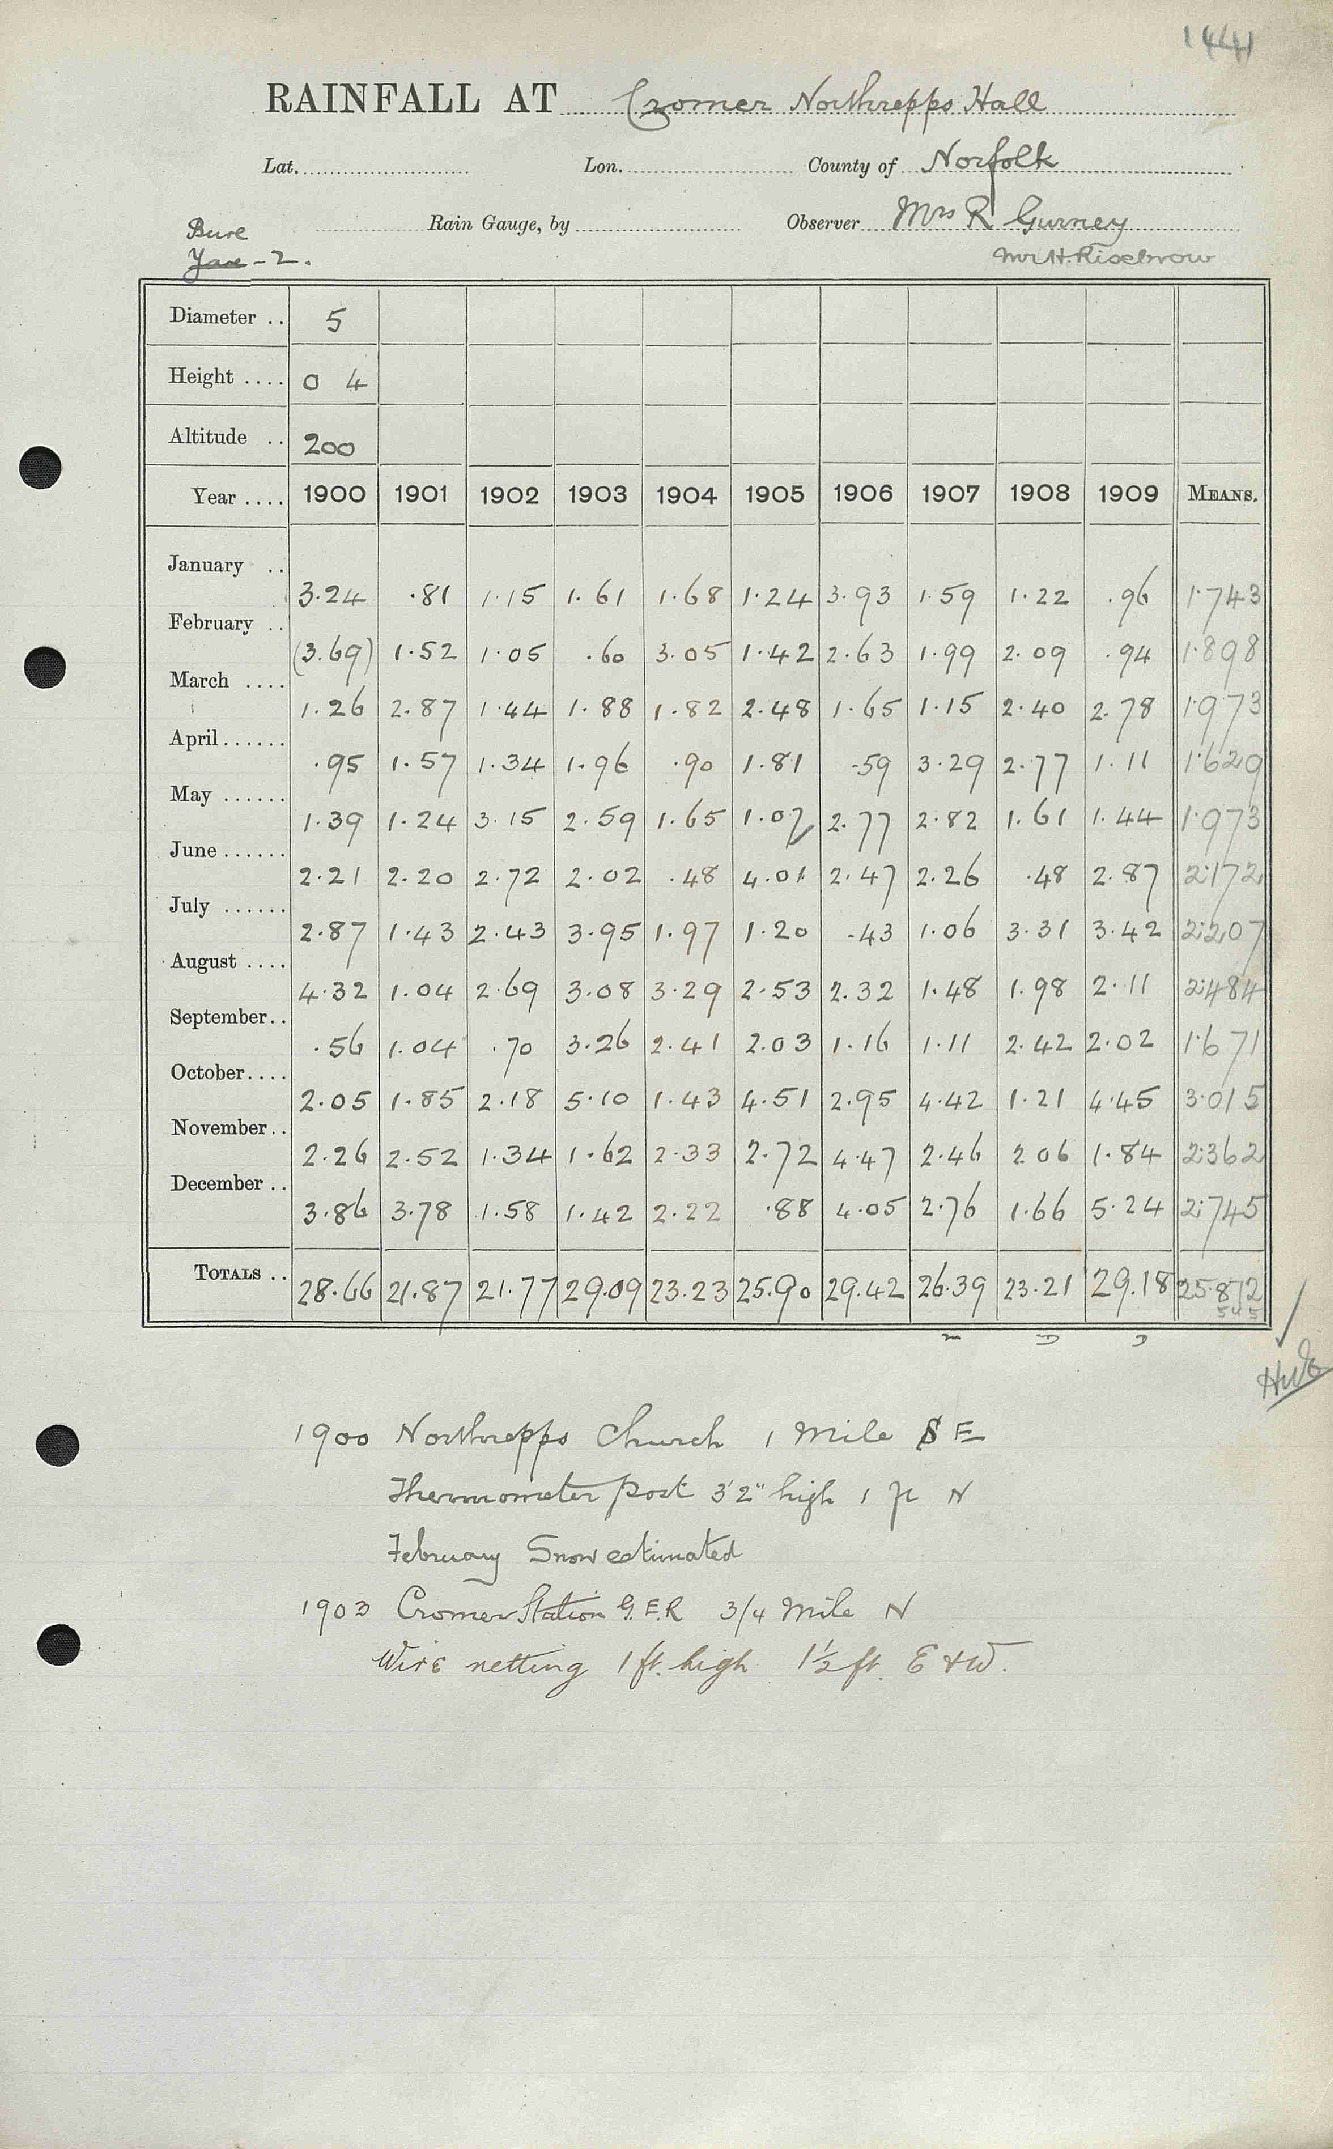 1441
RAINFALL AT Cromer Northrepps Hall
Lat. Lon. County of Norfolk
Rain Gauge, by Observer Mrs R Gurney
Bure
Yare - 2.
Diameter .. 5
Height .... 0 4
Altitude .. 200
Year .... 1900 1901 1902 1903 1904 1905 1906 1907 1908 1909 MEANS.
January .. 3.24 .81 1.15 1.61 1.68 1.24 3.93 1.59 1.22 .96 1.743
February .. (3.69) 1.52 1.05 .60 3.05 1.42 2.63 1.99 2.09 .94 1.898
March .... 1.26 2.87 1.44 1.88 1.82 2.48 1.65 1.15 2.40 2.78 1.973
April...... .95 1.57 1.34 1.96 .90 1.81 .59 3.29 2.77 1.11 1.629
May ...... 1.39 1.24 3.15 2.59 1.65 1.07 2.77 2.82 1.61 1.44 1.973
June ...... 2.21 2.20 2.72 2.02 .48 4.01 2.47 2.26 .48 2.87 2.172
July ...... 2.87 1.43 2.43 3.95 1.97 1.20 .43 1.06 3.31 3.42 2.207
August .... 4.32 1.04 2.69 3.08 3.29 2.53 2.32 1.48 1.98 2.11 2.484
September.. .56 1.04 .70 3.26 2.41 2.03 1.16 1.11 2.42 2.02 1.671
October.... 2.05 1.85 2.18 5.10 1.43 4.51 2.95 4.42 1.21 4.45 3.015
November.. 2.26 2.52 1.34 1.62 2.33 2.72 4.47 2.46 2 06 1.84 2.362
December .. 3.86 3.78 1.58 1.42 2.22 .88 4.05 2.76 1.66 5.24 2.745
TOTALS .. 28.66 21.87 21.77 29.09 23.23 25.90 29.42 26.39 23.21 29.18 25.872
545
1900 Northrepps Church 1 Mile S E
Thermometer post 3'2" high 1 ft N
February Snow estimated
1903 Cromer Station G.E.R 3/4 Mile N
Wire netting 1 ft. high 1½ ft. E & W.